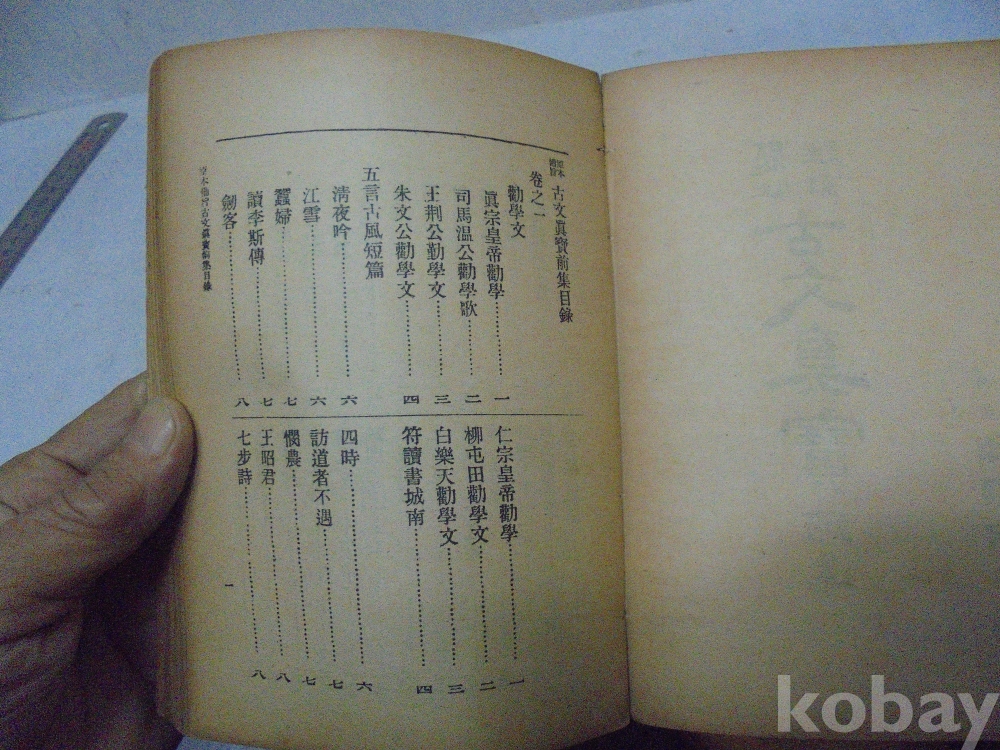 原本備旨 古文眞寶前集目錄
卷之一
勸學文
眞宗皇帝勸學……一
司馬温公勸學歌……二
王荊公勤學文……三
朱文公勸學文……四
五言古風短篇
淸夜吟……六
江雪……六
蠶婦……七
讀李斯傳……七
劒客……八
仁宗皇帝勸學……一
柳屯田勸學文……二
白樂天勸學文……三
符讀書城南……四
四時……六
訪道者不遇……七
憫農……七
王昭君……八
七步詩……八
原本備旨古文眞寶前集目錄
一
kobay